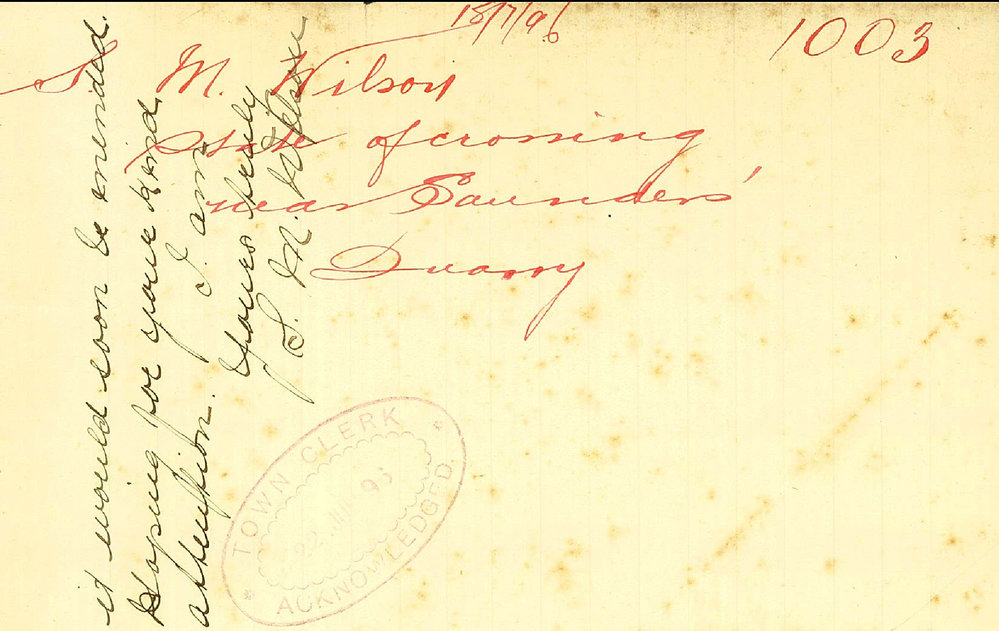 18/7/96
1003
S M. Wilson
State of crossing
near Saunders'
Quarry
it would soon be mended.
Hoping for your kind
attention. I am
Yours truly
S. M. Wilson
TOWN CLERK
22 93
ACKNOWLEDGED.